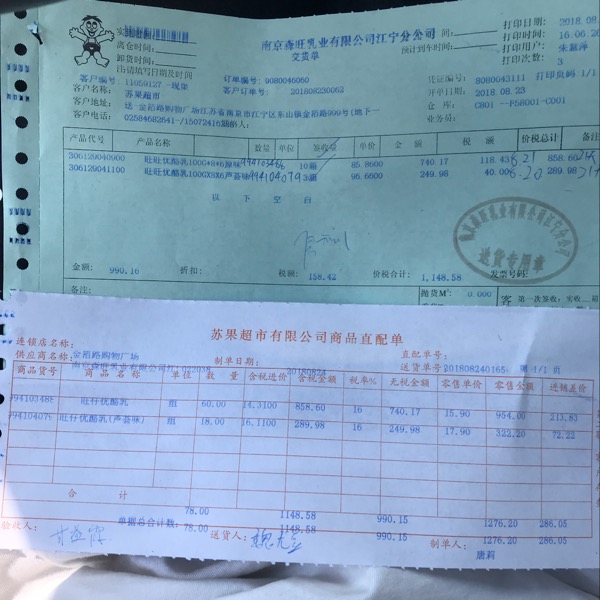 南京森旺乳业有限公司江宁分公司
交货单
离仓时间:
卸货时间:
注:请填写日期及时间
预计到车时间:
打印日期: 2018.08
打印时间: 16.06.20
打印用户: 朱
打印次数: 3
客户编号: 11059127 -现渠
订单编号: 9080046060
凭证编号: 8080043111 打印页码 1/1
客户名称: 苏果超市
客户订单: 201808230062
开单日期: 2018.08.23
客户地址: 达-金箔路购物广场江苏省南京市江宁区东山镇金箔路999号(地下一
仓 库: C801 --F58001-C001
电话: 02584682541-/15072416
业务员:
产品代号 产品名称 数量 单位 签收量 单价 金 额 税 额 价税总计 备注
306129040900 旺旺优酪乳100G*8*6原味 10箱 85.8600 740.17 118.43 858.60
306129041100 旺旺优酪乳100GX8X6芦荟味 3箱 96.6600 249.98 40.00 289.98
以 下 空 白
南京森旺乳业有限公司江宁分公司
送货专用章
金额: 990.16 折扣: 税额: 158.42 价税合计: 1,148.58 发票号码:
备注:
抛货M³ 0.000
客 第一次签收: 实收 箱
苏果超市有限公司商品直配单
连锁店名称: 金箔路购物广场
直配单号:
供应商名称: 南京森旺乳业有限公司江
制单日期: 20180824
送货单号 20180824016 第 1/1 页
商品货号 商 品 名 称 单 位 数 量 含税进价 含税金额 税率% 无税金额 零售单价 零售金额 进销差价
旺仔优酪乳 组 60.00 14.3100 858.60 16 740.17 15.90 954.00 213.83
旺仔优酪乳(芦荟味) 组 18.00 16.1100 289.98 16 249.98 17.90 322.20 72.22
合 计 78.00 1148.58 990.15 1276.20 286.05
单据总合计数: 78.00 1148.58 990.15 1276.20 286.05
验收人: 送货人: 制单人: 唐莉